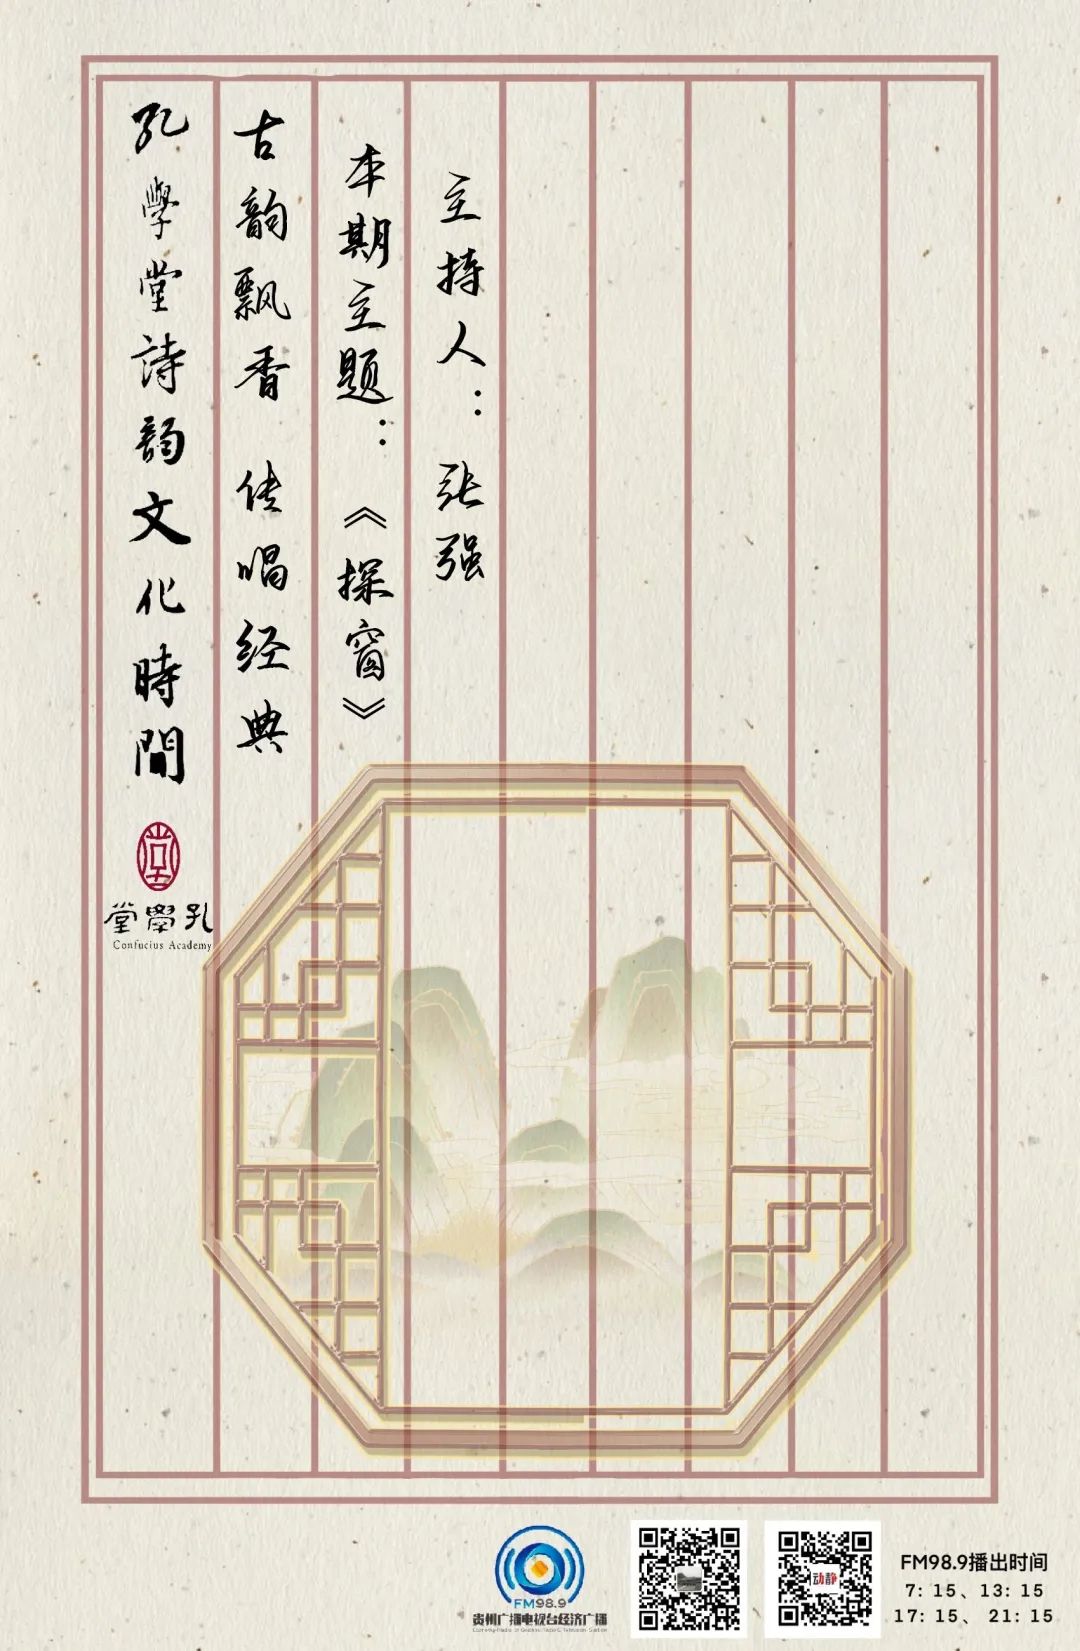 孔學堂詩韵文化時間
古韵飘香 传唱经典
本期主题：《探窗》
主持人：张强
堂學孔
Confucius Academy
FM98.9
贵州广播电视台经济广播
动静
FM98.9播出时间
7: 15、13: 15
17: 15、 21: 15